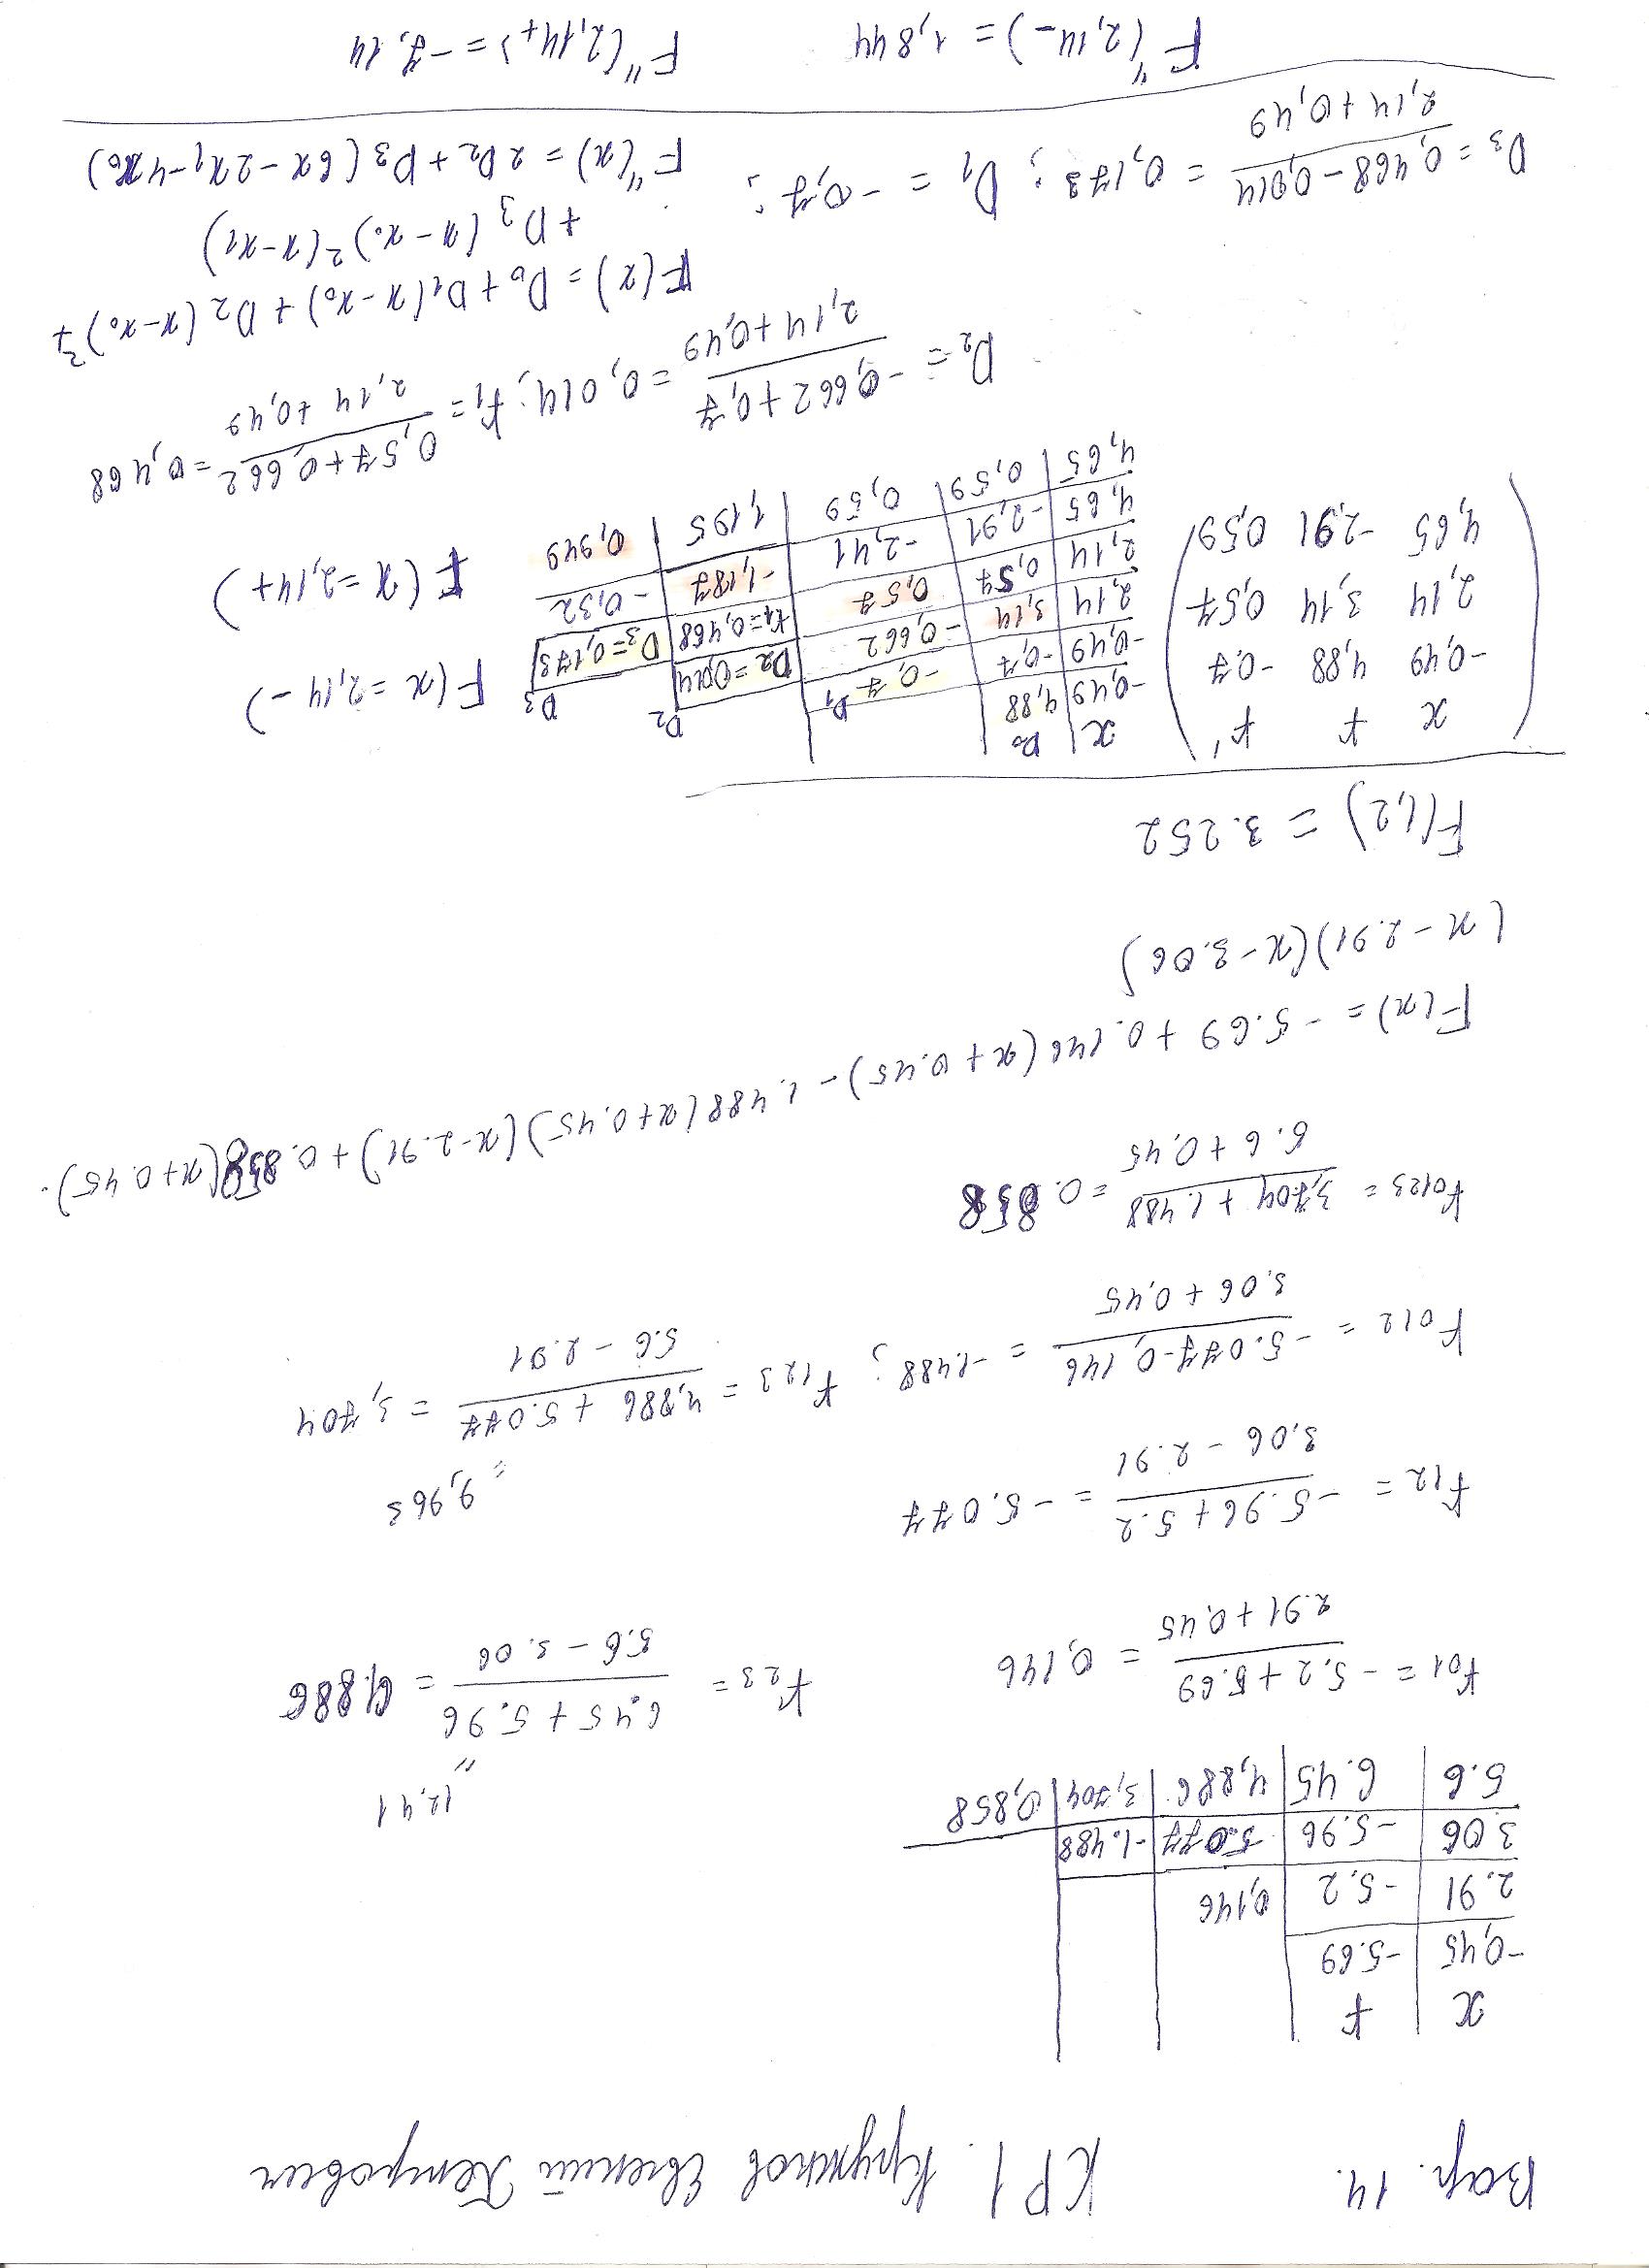 Вар. 14. КР1. Кружков Евгений Петрович
x f
-0,45 -5.69
2.91 -5.2 0,146
3.06 -5.96 -5.077 -1.488
5.6 6.45 4,886 3,704 0,858
f01 = -5.2+5.69 / 2.91+0.45 = 0,146
f23 = 6.45+5.96 / 5.6-3.06 = 4.886
" 12.41
f12 = -5.96+5.2 / 3.06-2.91 = -5.077
f012 = -5.077-0,146 / 3.06+0,45 = -1.488; f123 = 4,886+5.077 / 5.6-2.91 = 3,704
= 9,963
f0123 = 3,704+1.488 / 5.6+0,45 = 0.858
F(x) = -5.69+0.146(x+0.45)-1.488(x+0.45)(x-2.91)+0.858(x+0.45).
(x-2.91)(x-3.06)
F(1,2) = 3.252
x f f'
-0,49 4,88 -0.7
2,14 3,14 0,57
4,65 -2,91 0,59
x D0 D1 D2 D3
-0,49 4,88
-0,49 -0,7 -0,7
2,14 3,14 -0,662 D2=0,014
2,14 0,57 0,57 f1=0,468 D3=0,173
4,65 -2,91 -2,41 -1,187 -0,32
4,65 0,59 0,59 1,195 0,949
F(x=2,14-)
F(x=2,14+)
D2 = -0,662+0,7 / 2,14+0,49 = 0,014; f1 = 0,57+0,662 / 2,14+0,49 = 0,468
F(x) = D0+D1(x-x0)+D2(x-x0)²+
+D3(x-x0)²(x-x1)
D3 = 0,468-0,014 / 2,14+0,49 = 0,173; D1 = -0,7;
F"(x) = 2D2+D3(6x-2x1-4x0)
F"(2,14-) = 1,844 F"(2,14+) = -7,14